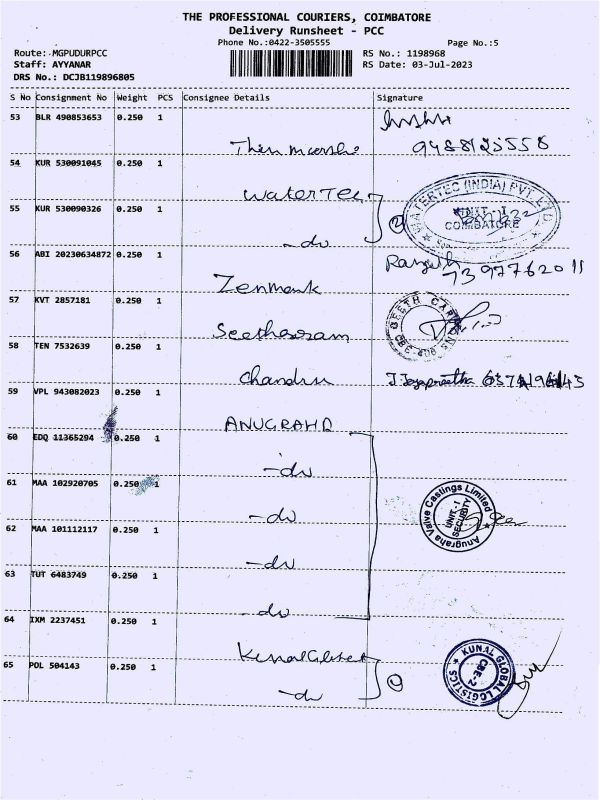 THE PROFESSIONAL COURIERS, COIMBATORE
Delivery Runsheet - PCC
Phone No.:0422-3505555
Page No.:5
Route: MGPUDURPCC
RS No.: 1198968
Staff: AYYANAR
RS Date: 03-Jul-2023
DRS No.: DCJB119896805
S No Consignment No Weight PCS Consignee Details Signature
53 BLR 490853653 0.250 1
9488125558
54 KUR 530091045 0.250 1
WATERTEC
WATERTEC (INDIA) PVT. LTD.
UNIT-I
COIMBATORE
55 KUR 530090326 0.250 1
-do
2
56 ABI 20230634872 0.250 1
Ranjith
7397762011
Zenmark
57 KVT 2857181 0.250 1
Seetharam
58 TEN 7532639 0.250 1
Chandru
J Jeyapreetha
59 VPL 943082023 0.250 1
ANUGRAHA
60 EDQ 11365294 0.250 1
-do
61 MAA 102920705 0.250 1
-do
Anugraha Valve Castings Limited
UNIT-I
SECURITY
62 MAA 101112117 0.250 1
-do
63 TUT 6483749 0.250 1
-do
64 IXM 2237451 0.250 1
Kunal Global
KUNAL GLOBAL LOGISTICS
CBE-2
65 POL 504143 0.250 1
-do